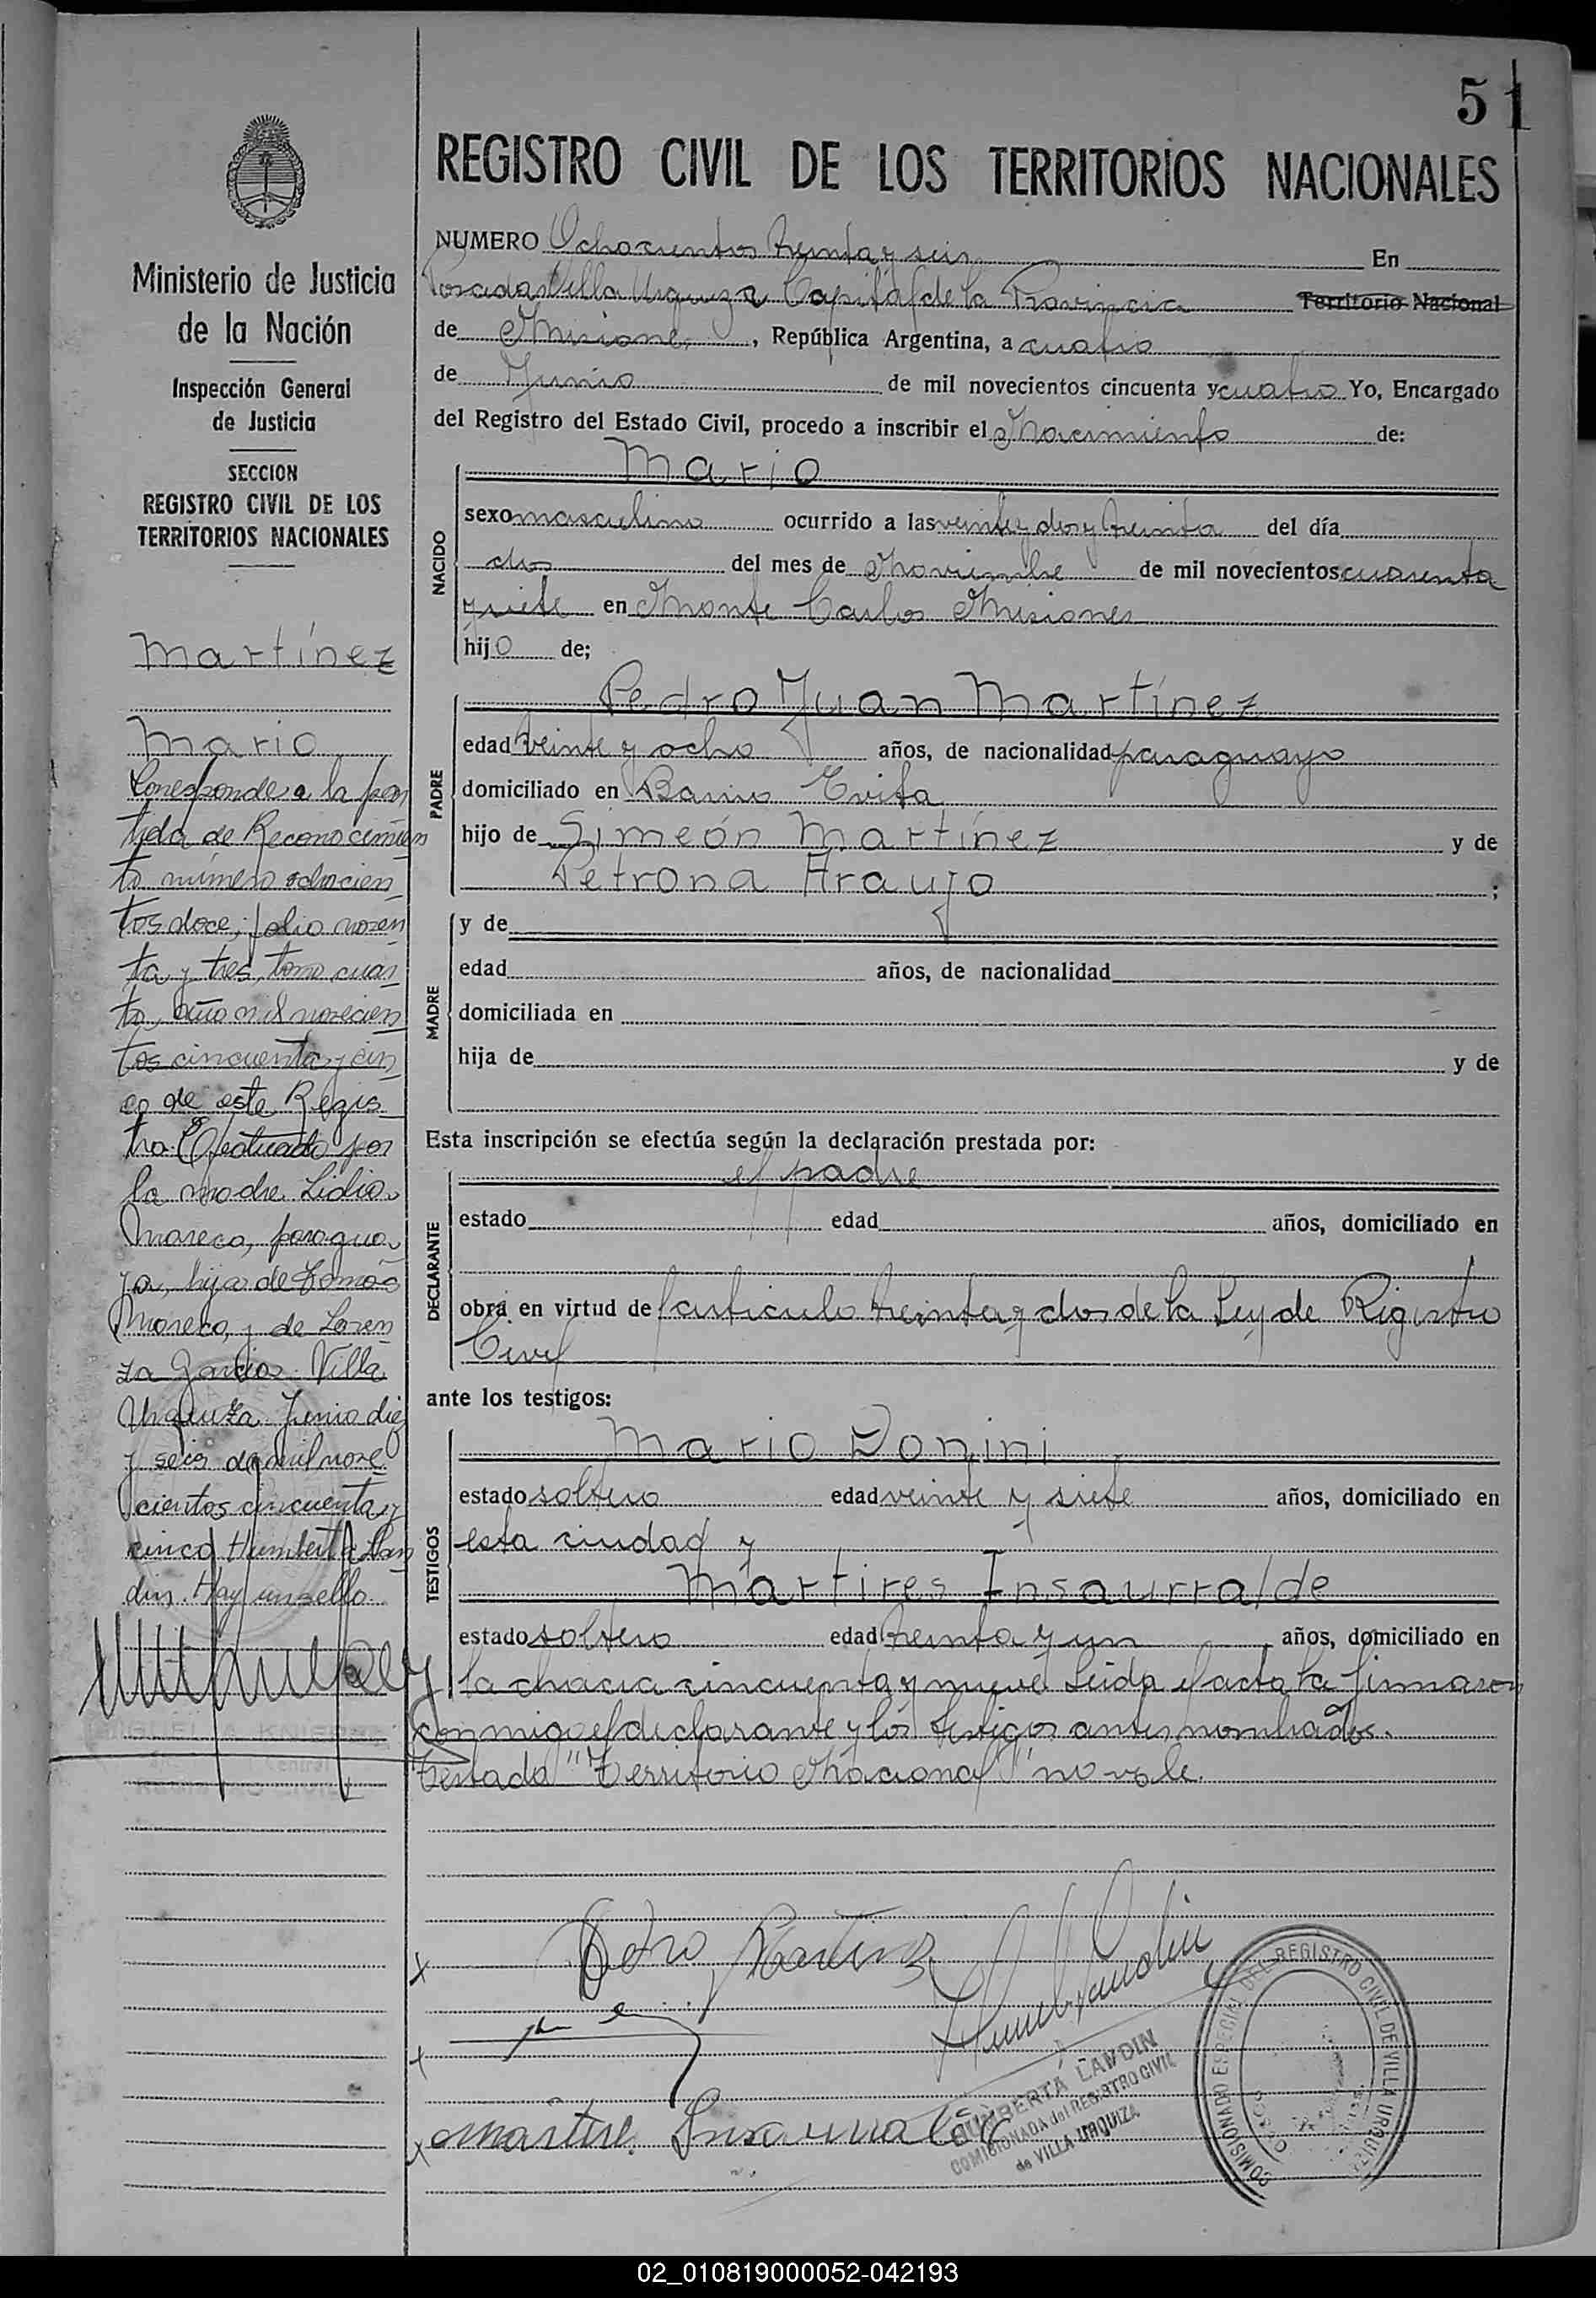 51
REGISTRO CIVIL DE LOS TERRITORIOS NACIONALES
Ministerio de Justicia
de la Nación
Inspección General
de Justicia
SECCION
REGISTRO CIVIL DE LOS
TERRITORIOS NACIONALES
Martínez
Mario
Corresponde a la par
tida de Reconocimien
to número ochocien
tos doce, folio noven
ta y tres, tomo cuar
to, año mil novecien
tos cincuenta y cin
co de este Regis
tro. Efectuado por
la madre Lidia
Mareco, paragua
ya, hija de Tomás
Mareco y de Loren
za García. Villa
Urquiza Junio diez
y seis de mil nove
cientos cincuenta y
cinco Humberta Lan
din. Hay un sello
MIGUEL A. KNIER
Central
NUMERO Ochocientos treinta y seis En
Posadas Villa Urquiza Capital de la Provincia Territorio Nacional
de Misiones, República Argentina, a cuatro
de Junio de mil novecientos cincuenta y cuatro Yo, Encargado
del Registro del Estado Civil, procedo a inscribir el Nacimiento de:
NACIDO
Mario
sexo masculino ocurrido a las veinte y dos y treinta del día
dos del mes de Noviembre de mil novecientos cuarenta
y siete en Monte Carlos Misiones
hijo de;
PADRE
Pedro Juan Martínez
edad veinte y ocho años, de nacionalidad paraguayo
domiciliado en Barrio Evita
hijo de Simeón Martínez y de
Petrona Araujo ;
MADRE
y de
edad años, de nacionalidad
domiciliada en
hija de y de
Esta inscripción se efectúa según la declaración prestada por:
DECLARANTE
el padre
estado edad años, domiciliado en
obra en virtud de l'artículo treinta y dos de la Ley de Registro
Civil
ante los testigos:
TESTIGOS
Mario Donini
estado soltero edad veinte y siete años, domiciliado en
esta ciudad y
Martires Insaurralde
estado soltero edad treinta y un años, domiciliado en
la chacra cincuenta y nueve Leida el acta la firmaron
conmigo el declarante y los testigos antes nombrados.
Testado "Territorio Nacional" no vale.
x Pedro Martinez
x
x Martire Insaurralde
HUMBERTA LANDIN
COMISIONADA del REGISTRO CIVIL
de VILLA URQUIZA
COMISIONADO ESPECIAL DEL REGISTRO CIVIL DE VILLA URQUIZA
02_010819000052-042193